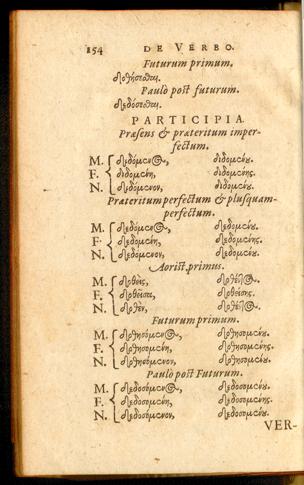 154 DE VERBO.
Futurum primum.
δοθήσεσθαι.
Paulò post futurum.
δεδόσεσθαι.
PARTICIPIA.
Præsens & præteritum imper-
fectum.
M. διδόμενος, διδομένου.
F. διδομένη, διδομένης.
N. διδόμενον, διδομένου.
Præteritum perfectum & plusquam-
perfectum.
M. δεδομένος, δεδομένου.
F. δεδομένη, δεδομένης.
N. δεδομένον, δεδομένου.
Aorist. primus.
M. δοθείς, δοθέντος.
F. δοθεῖσα, δοθείσης.
N. δοθέν, δοθέντος.
Futurum primum.
M. δοθησόμενος, δοθησομένου.
F. δοθησομένη, δοθησομένης.
N. δοθησόμενον, δοθησομένου.
Paulò post Futurum.
M. δεδοσόμενος, δεδοσομένου.
F. δεδοσομένη, δεδοσομένης.
N. δεδοσόμενον, δεδοσομένου.
VER-